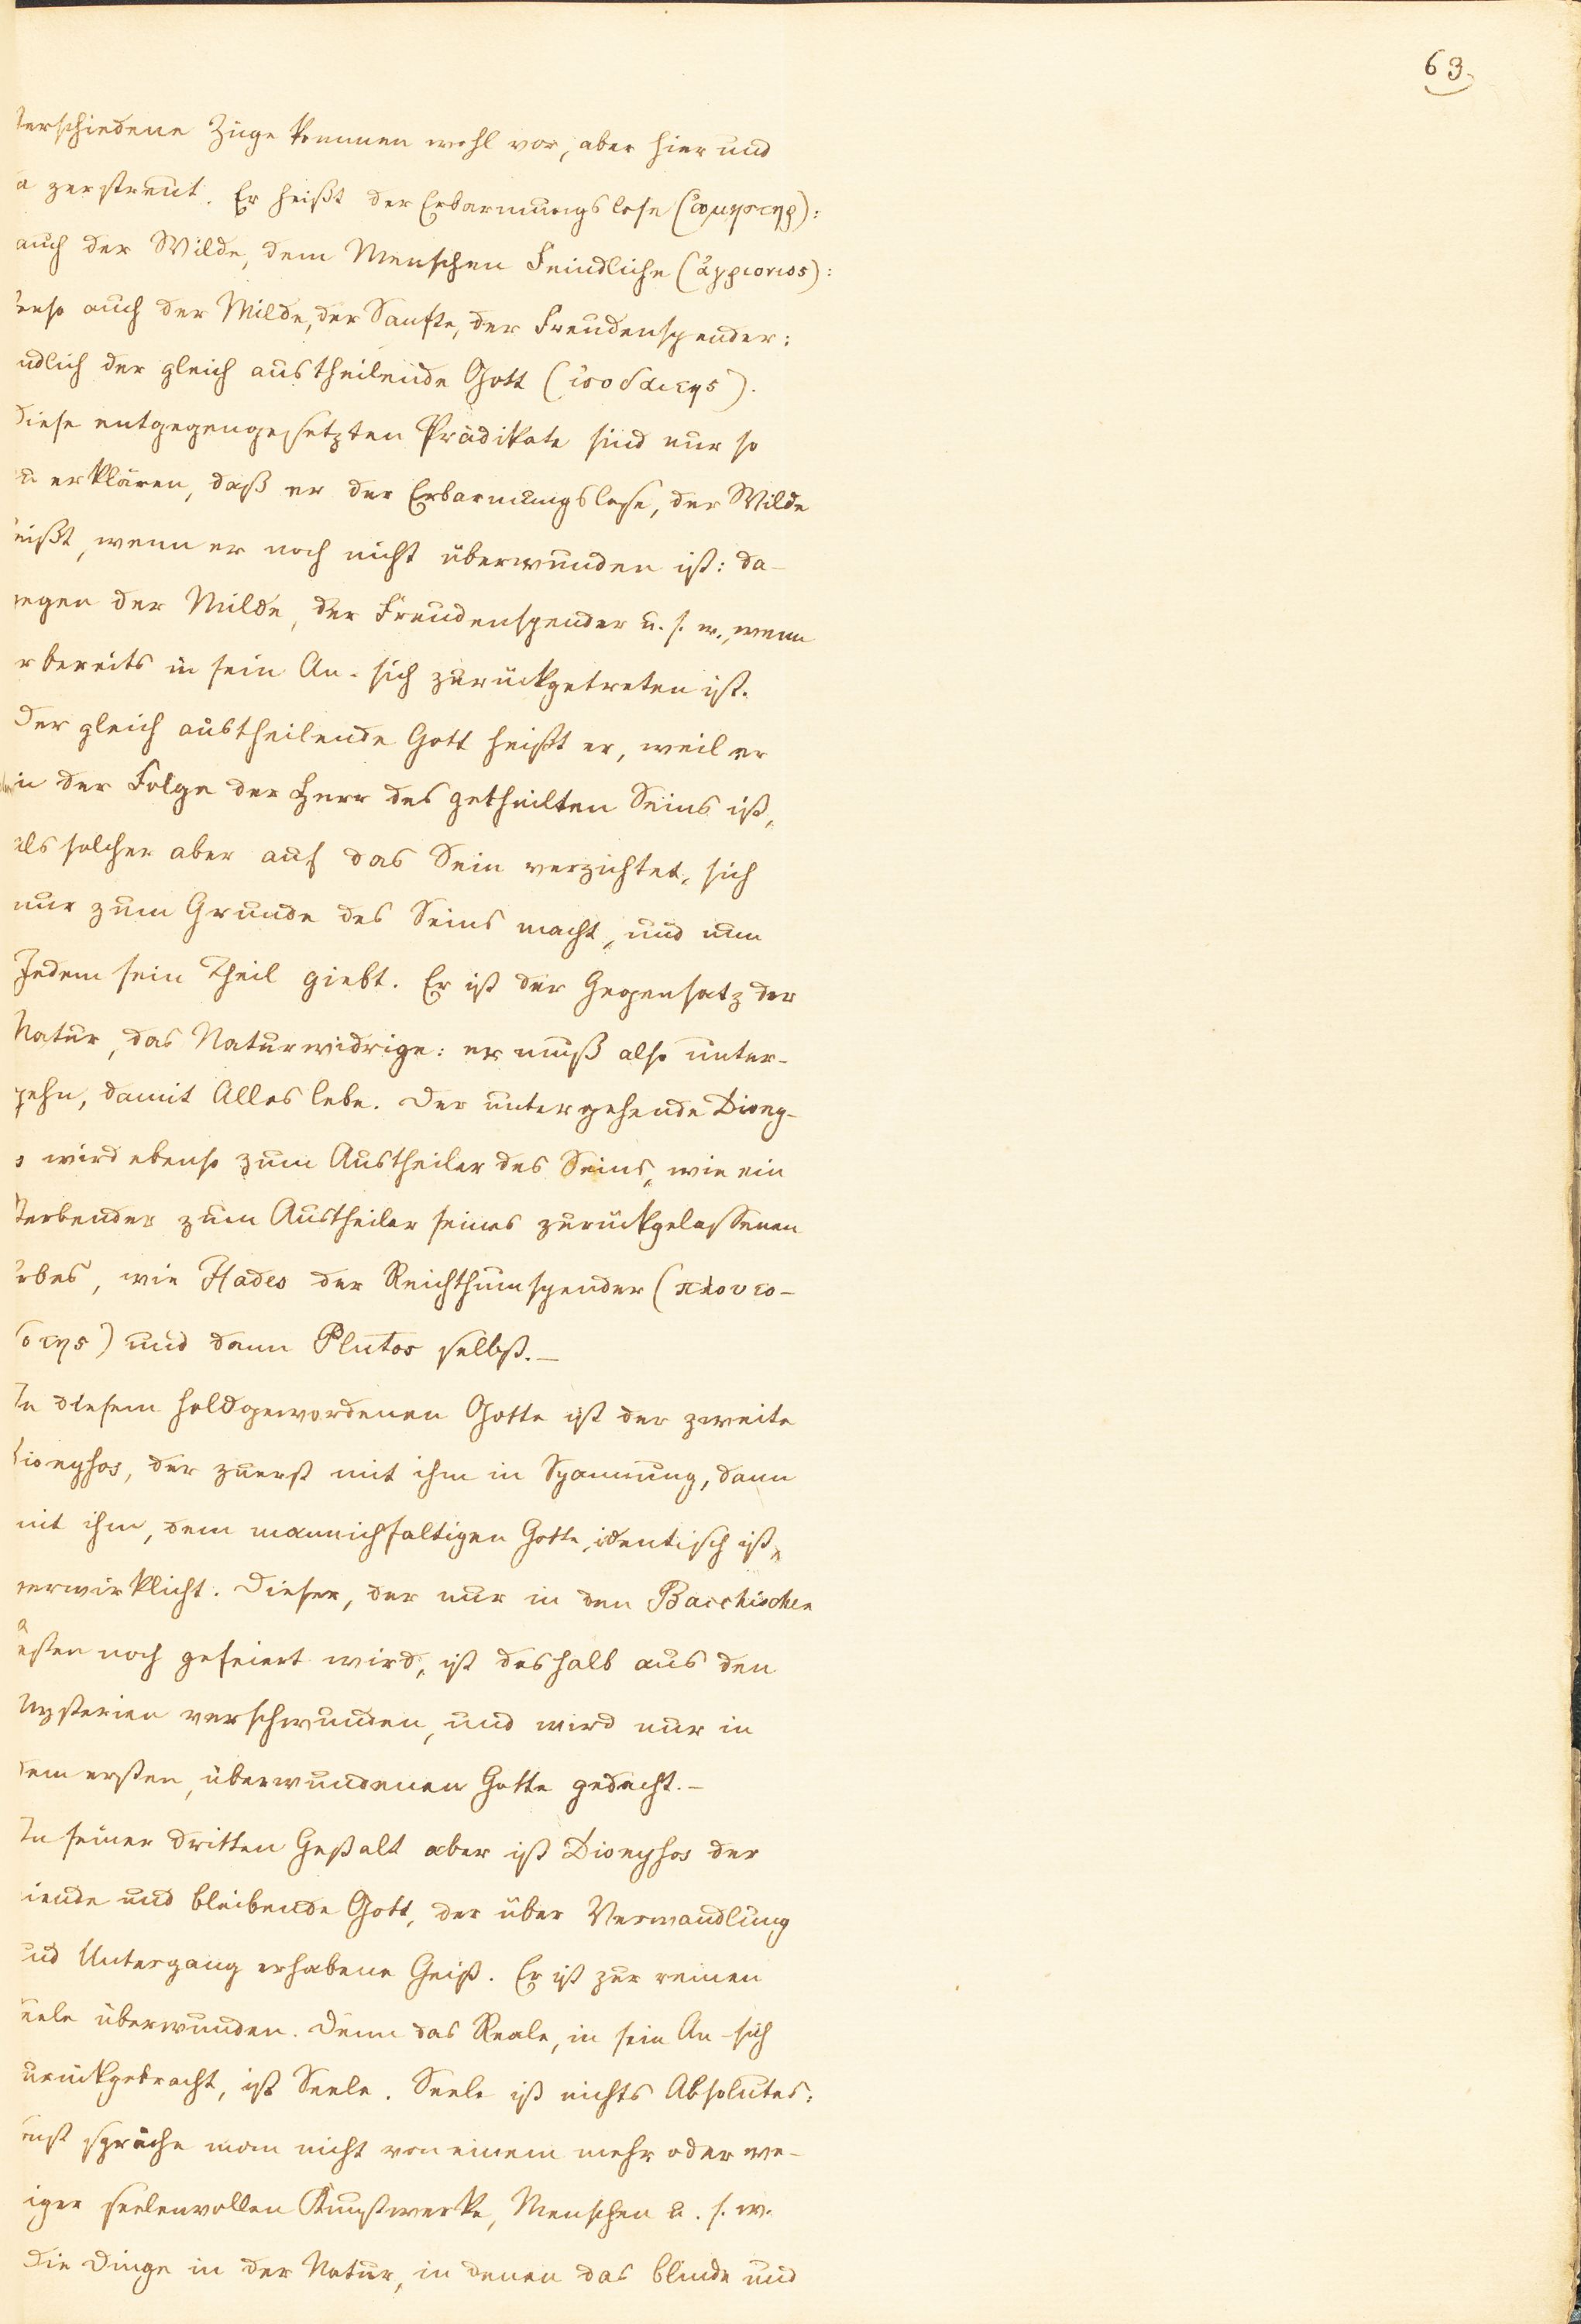 63.
erschiedene Züge kommen wohl vor, aber hier und
a zerstreut. Er heißt der Erbarmungslose (ὠμηστηρ):
auch der Wilde, dem Menschen Feindliche (ἀγριονιος):
enso auch der Milde, der Sanfte, der Freudenspender:
ndlich der gleich austheilende Gott (ἰσοδαιτης).
Diese entgegengesetzten Prädikate sind nur so
u erklären, daß er der Erbarmungslose, der Wilde
eißt, wenn er noch nicht überwunden ist: da-
egen der Milde, der Freudenspender u. s. w., wenn
r bereits in sein An-sich zurückgetreten ist.
Der gleich austheilende Gott heißt er, weil er
in der Folge der Herr des getheilten Seins ist,
als solcher aber auf das Sein verzichtet, sich
nur zum Grunde des Seins macht, und nun
Jedem sein Theil giebt. Er ist der Gegensatz der
Natur, das Naturwidrige: er muß also unter-
gehn, damit Alles lebe. Der untergehende Diony-
s wird ebenso zum Austheiler des Seins, wie ein
terbender zum Austheiler seines zurückgelassenen
rbes, wie Hades der Reichthumspender (πλουτο-
δοτης) und dann Plutos selbst.—
In diesem holdgewordenen Gotte ist der zweite
Dionysos, der zuerst mit ihm in Spannung, dann
mit ihm, dem mannichfaltigen Gotte, identisch ist,
verwirklicht. Dieser, der nur in den Bacchischen
esten noch gefeiert wird, ist deshalb aus den
Mysterien verschwunden, und wird nur in
dem ersten, überwundenen Gotte gedacht.—
In seiner dritten Gestalt aber ist Dionysos der
iende und bleibende Gott, der über Verwandlung
und Untergang erhabene Geist. Er ist zur reinen
eele überwunden. Denn das Reale, in sein An-sich
urückgebracht, ist Seele. Seele ist nichts Absolutes:
onst spräche man nicht von einem mehr oder we-
iger seelenvollen Kunstwerke, Menschen u. s. w.
Die Dinge in der Natur, in denen das blinde und